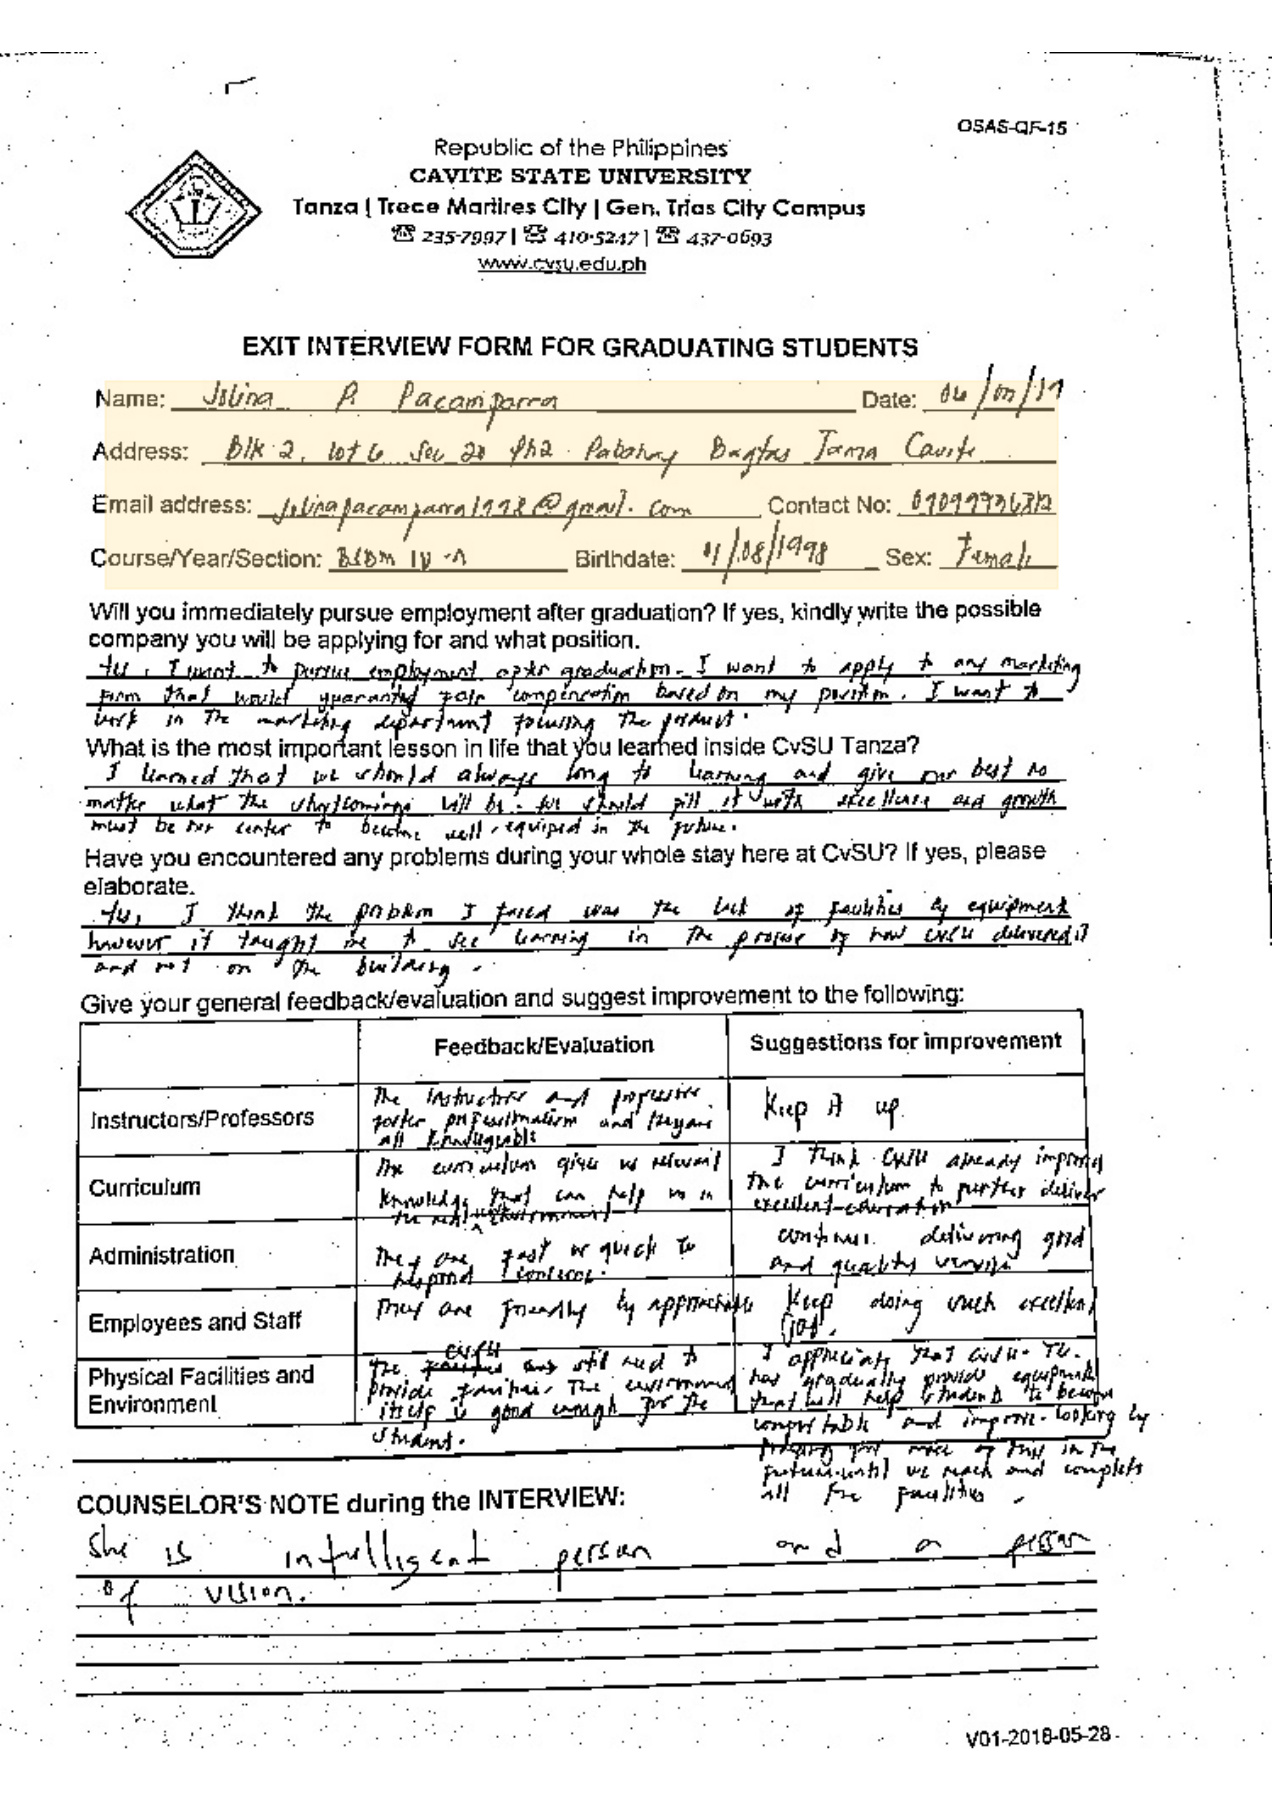 OSAS-QF-15
Republic of the Philippines
CAVITE STATE UNIVERSITY
Tanza | Trece Martires City | Gen. Trias City Campus
☎ 235-7997 | ☎ 410-5247 | ☎ 437-0693
www.cvsu.edu.ph
EXIT INTERVIEW FORM FOR GRADUATING STUDENTS
Name: Jolina P. Pacamparra Date:
Address: Blk 2, lot 6 Sec 20 Ph2 Pabahay Bagtas Tanza Cavite
Email address: jolinapacamparra1998@gmail.com Contact No:
Course/Year/Section: BSBM IV-A Birthdate: 08/1998 Sex: Female
Will you immediately pursue employment after graduation? If yes, kindly write the possible
company you will be applying for and what position.
Yes, I want to pursue employment after graduation. I want to apply to any marketing
firm that would guaranted fair compencation based on my position. I want to
work in the marketing department focusing the product.
What is the most important lesson in life that you learned inside CvSU Tanza?
I learned that we should always long to learning and give our best no
matter what the shortcomings will be. We should fill it with excellence and growth
must be our center to become well-equiped in the future.
Have you encountered any problems during your whole stay here at CvSU? If yes, please
elaborate.
Yes, I think the problem I faced was the lack of facilities & equipment
however it taught me to see learning in the of how CvSU delivered it
and not on the building.
Give your general feedback/evaluation and suggest improvement to the following:
Feedback/Evaluation Suggestions for improvement
Instructors/Professors
The instructors and professors
foster professionalism and they are
all knowledgeable
Keep it up.
Curriculum
The curriculum gives us relevant
knowledge that can help us in
the real environment
I think CvSU already improved
the curriculum to further deliver
excellent education
Administration
They are fast or quick to
respond concerns.
continue delivering good
and quality service
Employees and Staff
They are friendly & approachable
Keep doing such excellent
job.
Physical Facilities and
Environment
The CvSU still need to
provide facilities. The environment
itself is good enough for the
student.
I appreciate that CvSU-TC.
has gradually provide equipment
that will help students to become
comfortable and improve. looking for
more of this in the
future until we reach and complete
all the facilities.
COUNSELOR'S NOTE during the INTERVIEW:
She is intelligent person and a person
of vision.
V01-2018-05-28